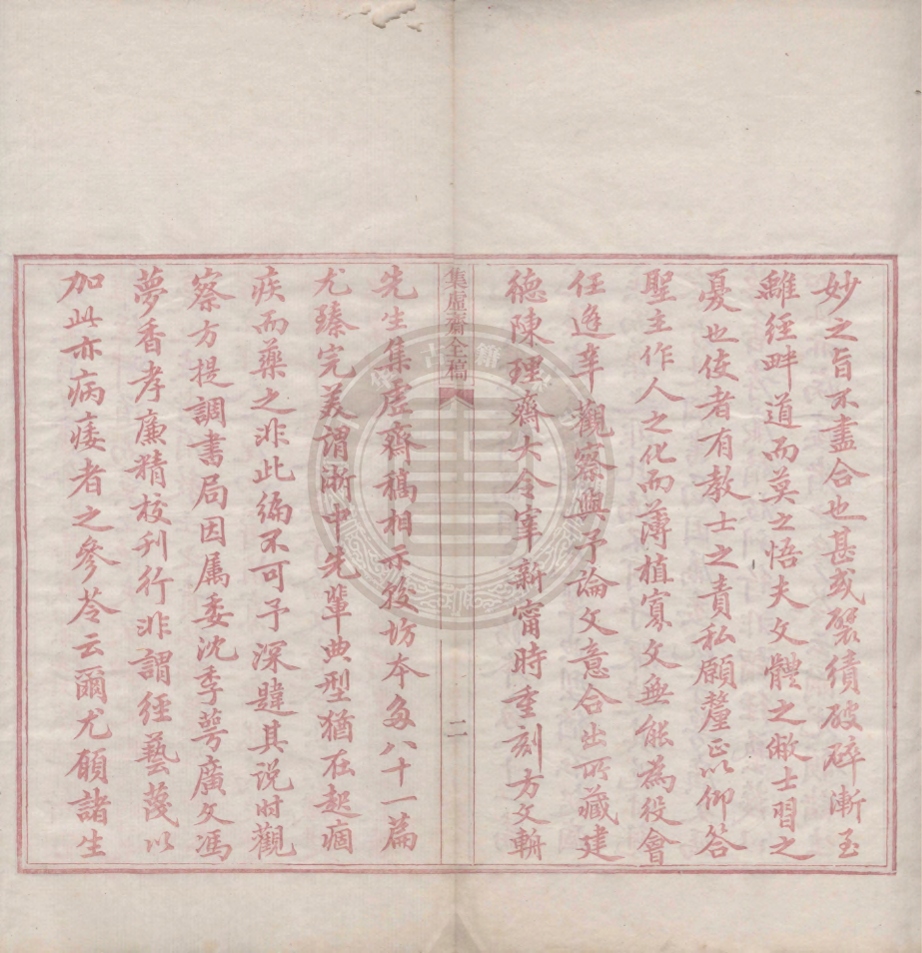 妙之旨不盡合也甚或襞績破碎漸至
離經畔道而莫之悟夫文體之敝士習之
憂也使者有教士之責私願釐正以仰答
聖主作人之化而薄植寡文無能為役會
任逢辛觀察與予論文意合出所藏建
德陳理齋大令宰新甯時重刻方文輈
集虛齋全稿
二
先生集虛齋稿相示較坊本多八十一篇
尤臻完美謂浙中先輩典型猶在起痼
疾而藥之非此編不可予深韙其说时觀
察方提調書局因属委沈季蕚廣文馮
夢香孝廉精校刊行非謂經藝蔑以
加此亦病痿者之參苓云爾尤願諸生